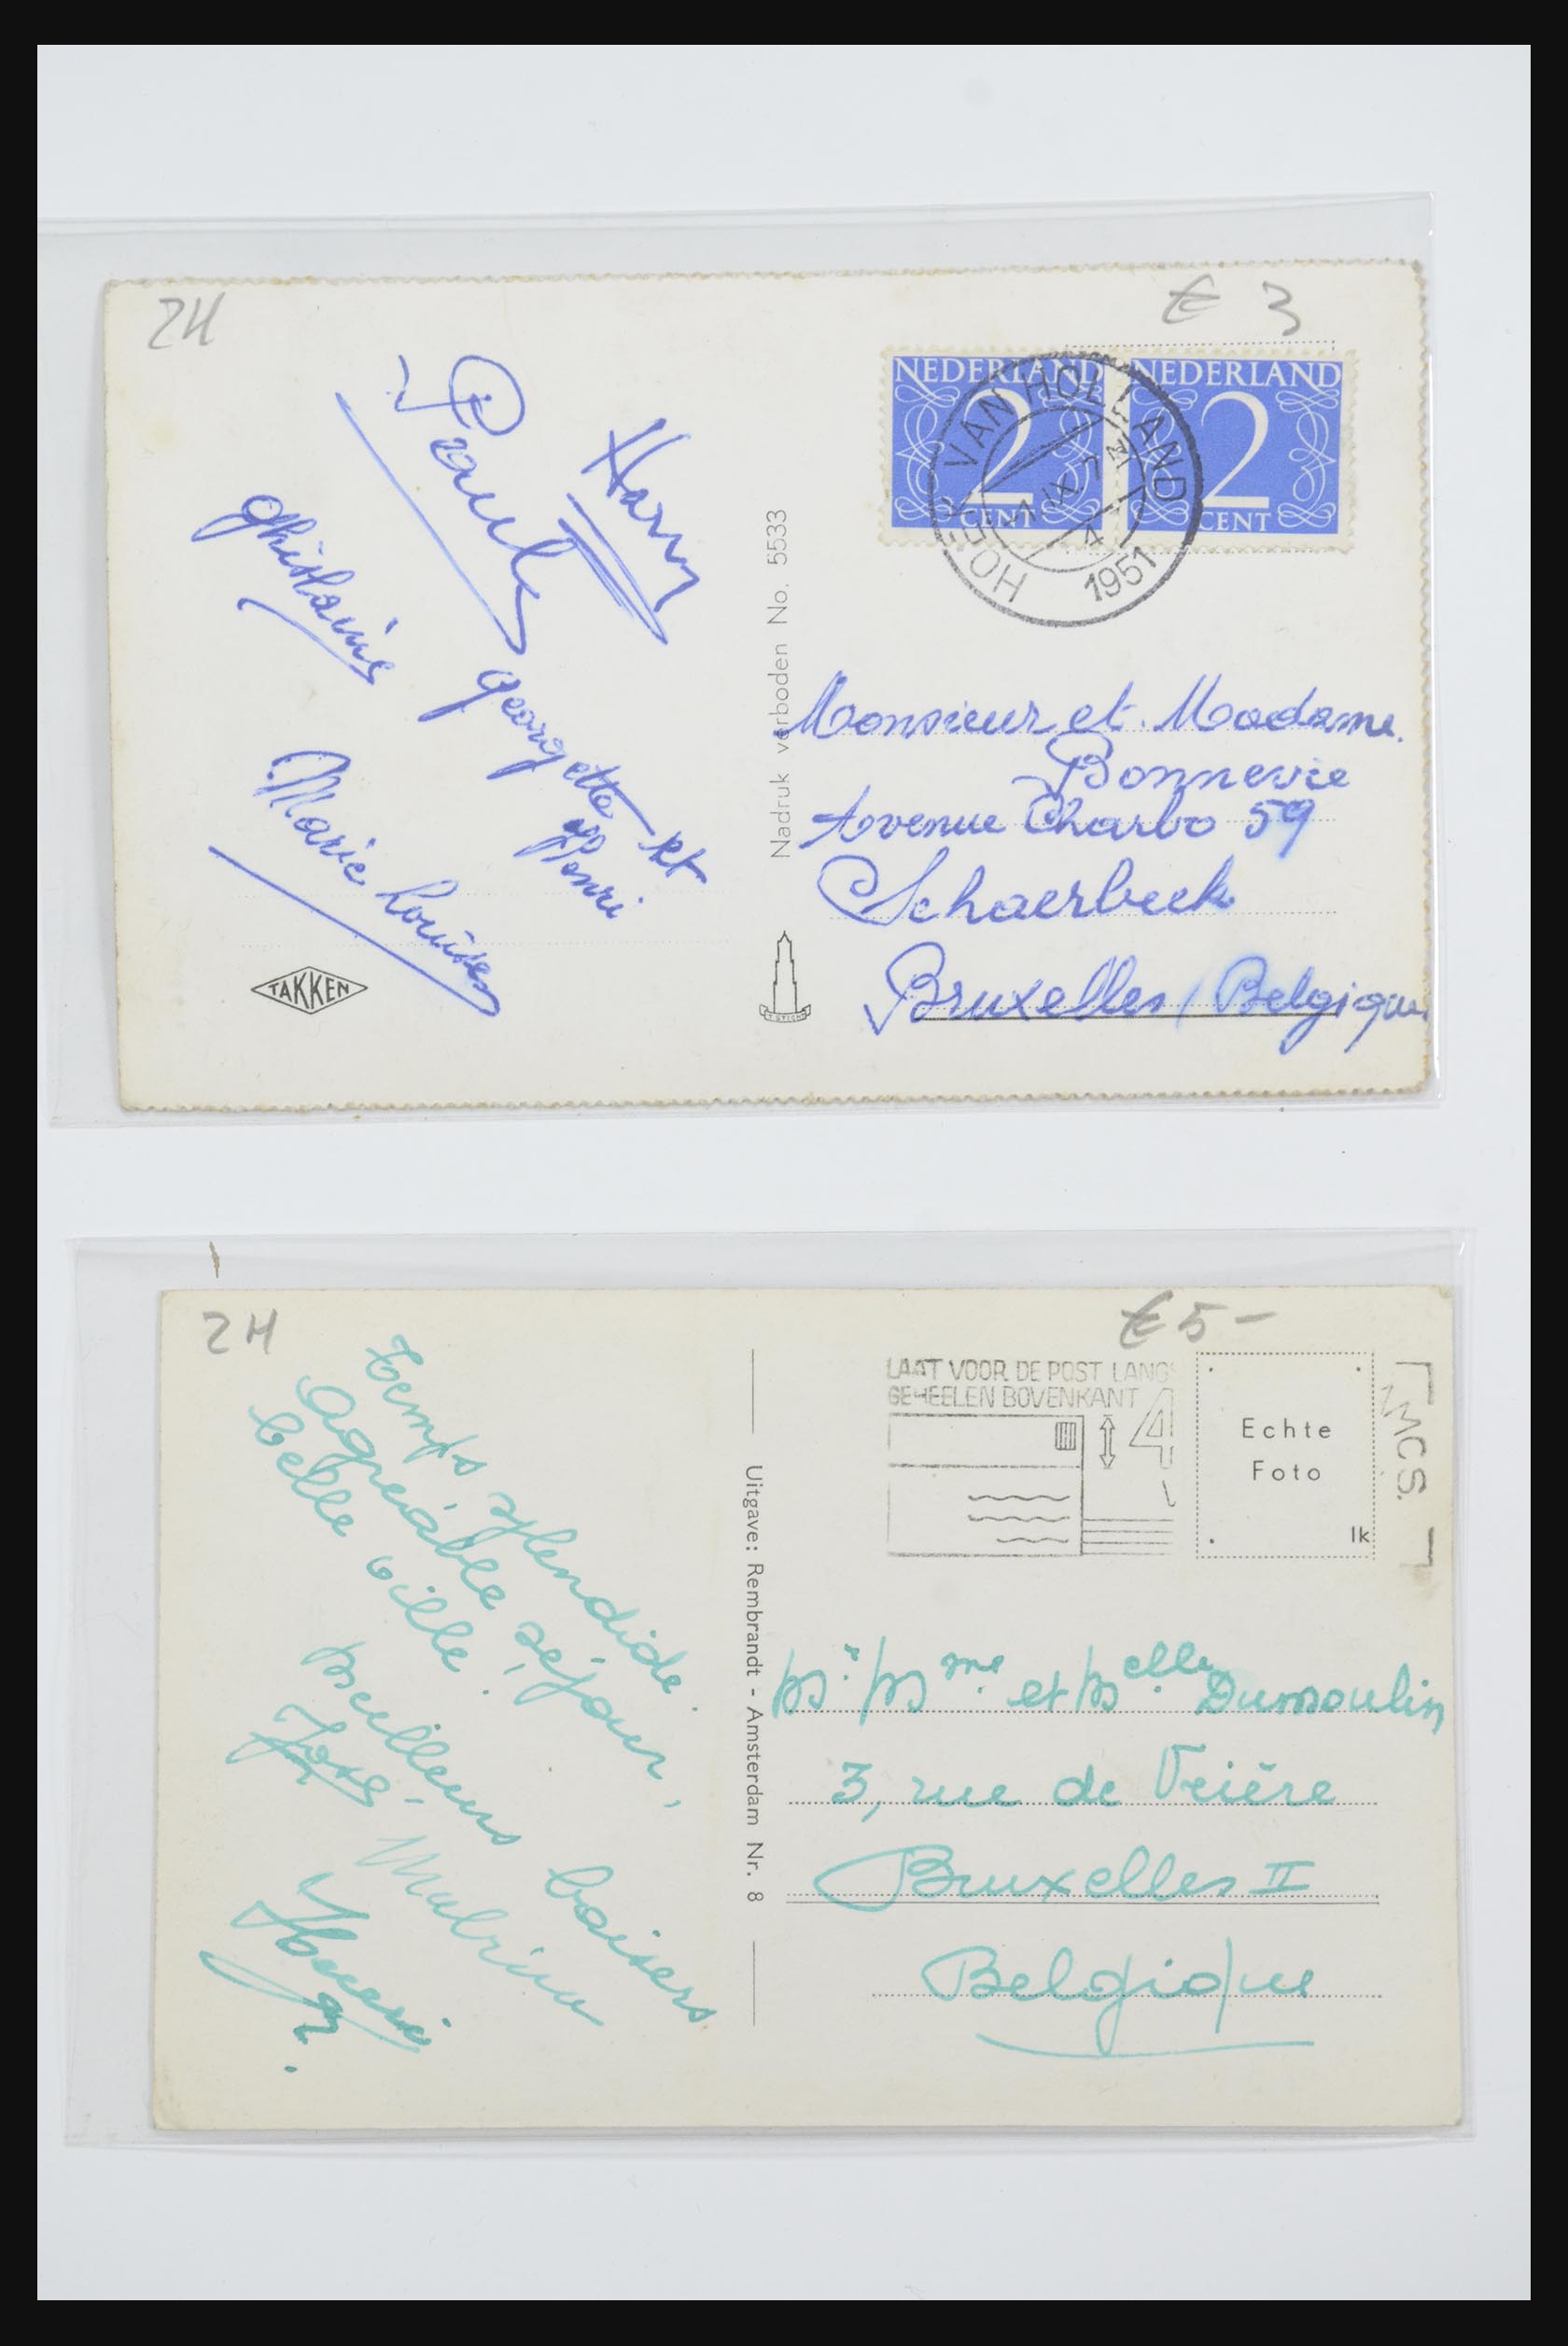 ZH
€ 3
NEDERLAND
2
CENT
NEDERLAND
2
CENT
HOEK VAN HOLLAND
1951
Harry
Paula
Ghislaine
Georgette et
Henri
Marie Louise
TAKKEN
Nadruk verboden No. 5533
Monsieur et Madame
Bonnevie
Avenue Charbo 59
Schaerbeek
Bruxelles / Belgique
ZH
€ 5-
LAAT VOOR DE POST LANGS
GEHEELEN BOVENKANT
4
Echte
Foto
lk
Temps splendide.
Agréable séjour,
belle ville.
Meilleurs baisers
José.
Henri
Uitgave: Rembrandt - Amsterdam Nr. 8
Mr. Mme. et Melle. Dumoulin
3, rue de
Bruxelles II
Belgique